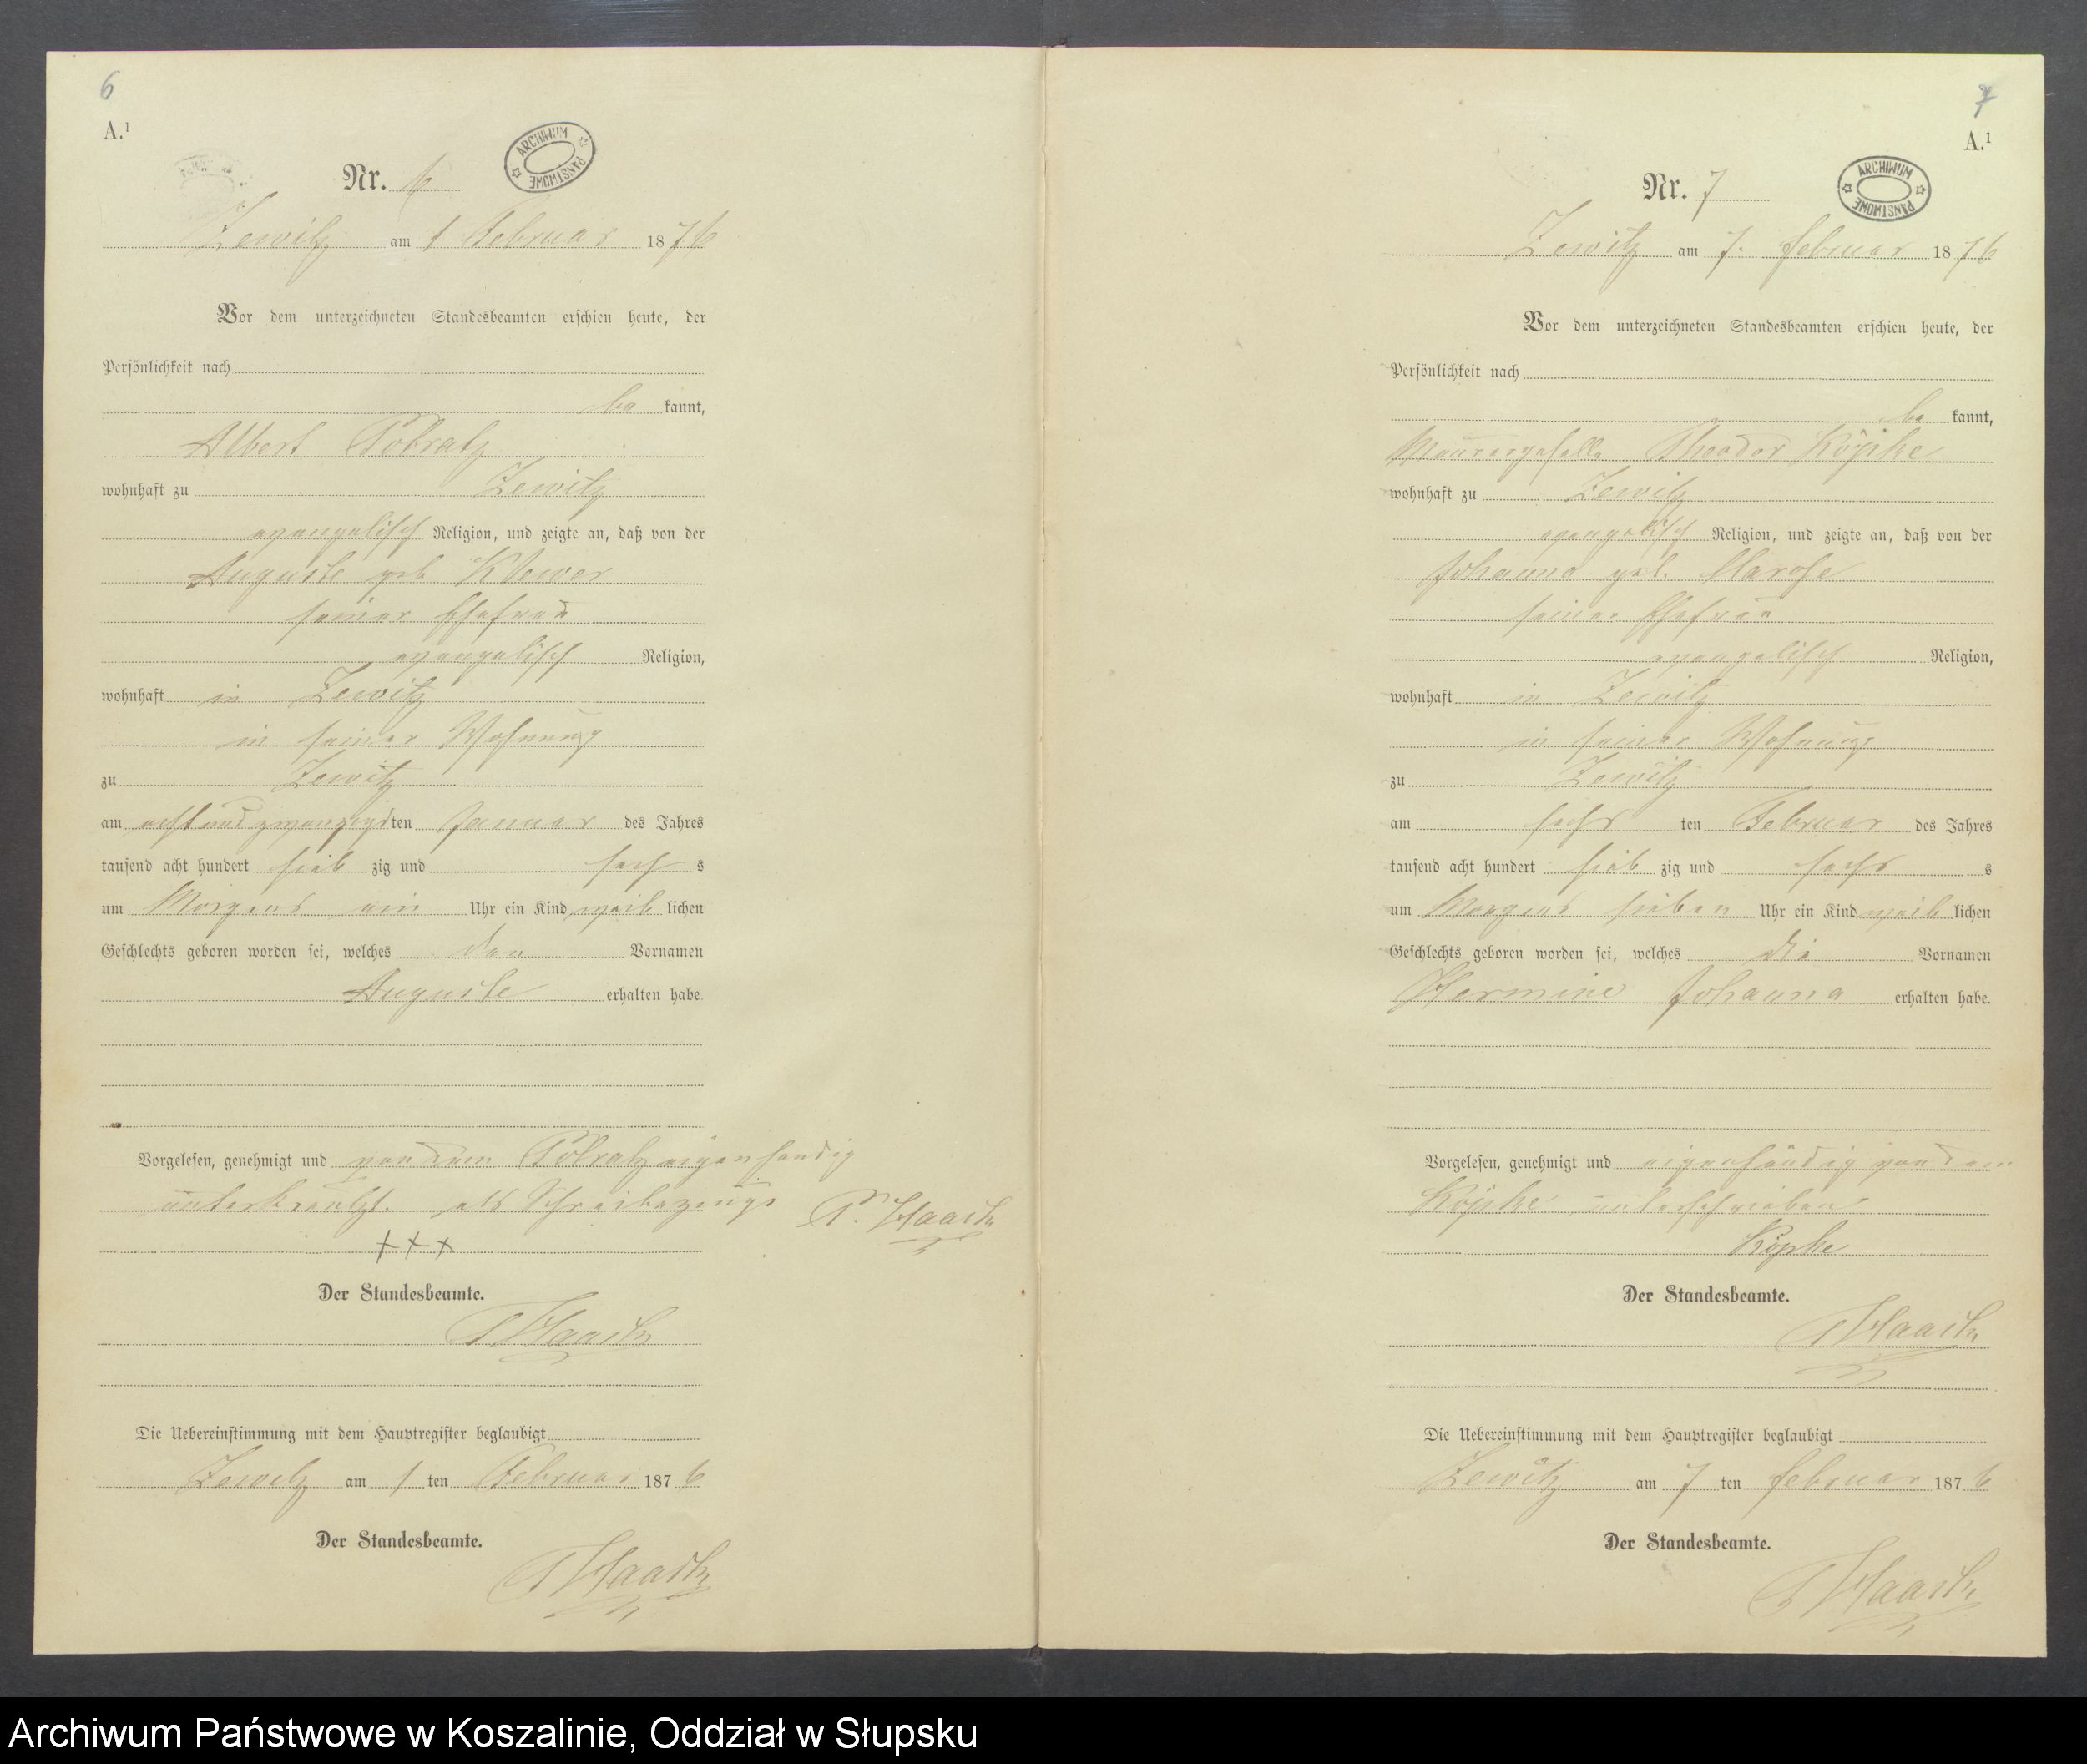 6
A.¹
ARCHIWUM PAŃSTWOWE
Nr. 6
Zewitz am 1 Februar 1876
Vor dem unterzeichneten Standesbeamten erschien heute, der
Persönlichkeit nach
be kannt,
Albert Pobratz
wohnhaft zu Zewitz
evangelisch Religion, und zeigte an, daß von der
Auguste geb Klewer
seiner Ehefrau
evangelisch Religion,
wohnhaft in Zewitz
in seiner Wohnung
zu Zewitz
am achtundzwanzigsten Januar des Jahres
tausend acht hundert sieb zig und sech s
um Morgens ein Uhr ein Kind weib lichen
Geschlechts geboren worden sei, welches den Vornamen
Auguste erhalten habe.
Vorgelesen, genehmigt und von dem Pobratz eigenhändig
unterkreuzt. als Schreibezeuge P. Haack
+++
Der Standesbeamte.
Haack
Die Uebereinstimmung mit dem Hauptregister beglaubigt
Zewitz am 1 ten Februar 1876
Der Standesbeamte.
Haack
7
A.¹
ARCHIWUM PAŃSTWOWE
Nr. 7
Zewitz am 7. Februar 1876
Vor dem unterzeichneten Standesbeamten erschien heute, der
Persönlichkeit nach
be kannt,
Maurergeselle Theodor Köpke
wohnhaft zu Zewitz
evangelisch Religion, und zeigte an, daß von der
Johanna geb.
seiner Ehefrau
evangelisch Religion,
wohnhaft in Zewitz
in seiner Wohnung
zu Zewitz
am sechs ten Februar des Jahres
tausend acht hundert sieb zig und sechs s
um Morgens sieben Uhr ein Kind weib lichen
Geschlechts geboren worden sei, welches die Vornamen
Hermine Johanna erhalten habe.
Vorgelesen, genehmigt und eigenhändig von dem
Köpke unterschrieben
Köpke
Der Standesbeamte.
Haack
Die Uebereinstimmung mit dem Hauptregister beglaubigt
Zewitz am 7 ten Februar 1876
Der Standesbeamte.
Haack
Archiwum Państwowe w Koszalinie, Oddział w Słupsku